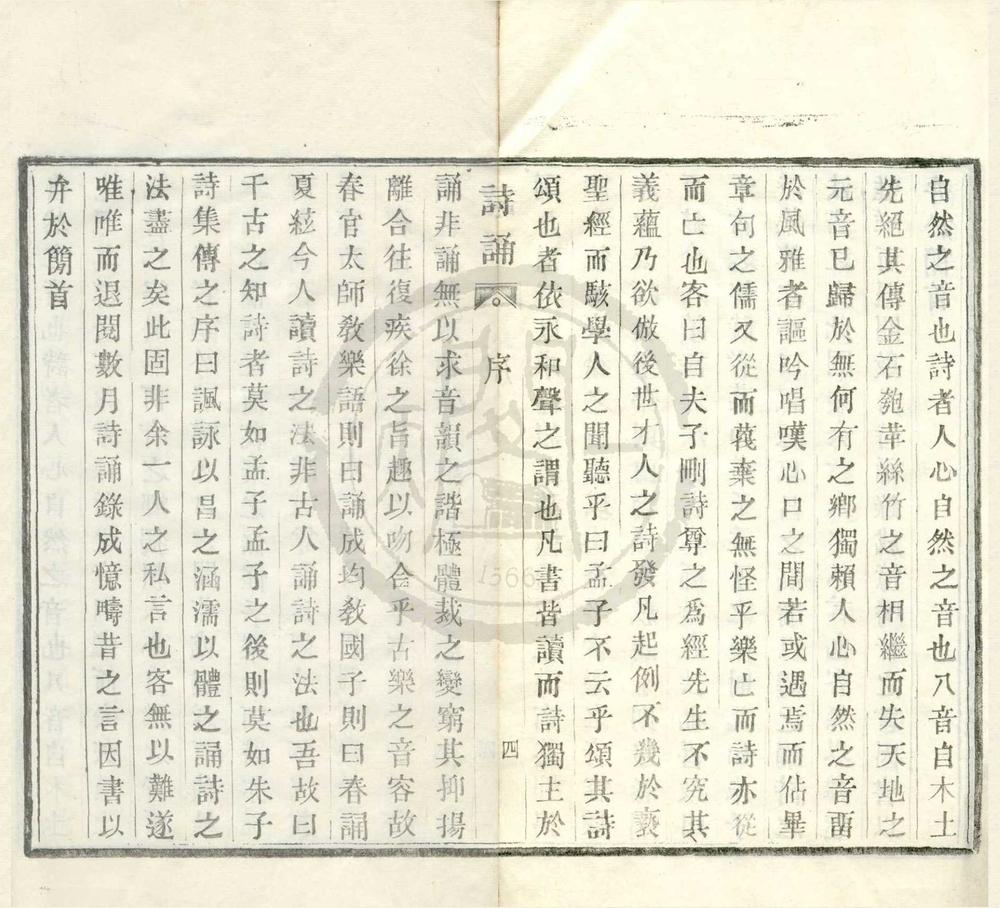 自然之音也詩者人心自然之音也八音自木土
先絕其傳金石匏革絲竹之音相繼而失天地之
元音已歸於無何有之鄉獨賴人心自然之音畱
於風雅者謳吟唱嘆心口之間若或遇焉而佔畢
章句之儒又從而蕞棄之無怪乎樂亡而詩亦從
而亡也客曰自夫子刪詩尊之爲經先生不究其
義蘊乃欲倣後世才人之詩發凡起例不幾於褻
聖經而駭學人之聞聽乎曰孟子不云乎頌其詩
頌也者依永和聲之謂也凡書皆讀而詩獨主於
詩誦 序 四
誦非誦無以求音韻之諧極體裁之變窮其抑揚
離合往復疾徐之旨趣以吻合乎古樂之音容故
春官太師敎樂語則曰誦成均敎國子則曰春誦
夏絃今人讀詩之法非古人誦詩之法也吾故曰
千古之知詩者莫如孟子孟子之後則莫如朱子
詩集傳之序曰諷詠以昌之涵濡以體之誦詩之
法盡之矣此固非余一人之私言也客無以難遂
唯唯而退閱數月詩誦錄成憶疇昔之言因書以
弁於簡首
1566